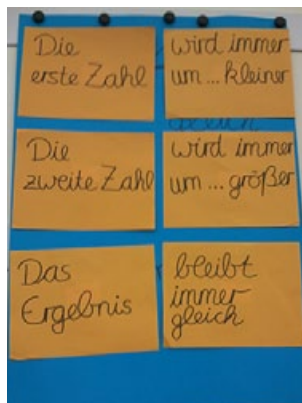 Die
erste Zahl
wird immer
um ... kleiner
Die
zweite Zahl
wird immer
um ... größer
Das
Ergebnis
bleibt
immer
gleich